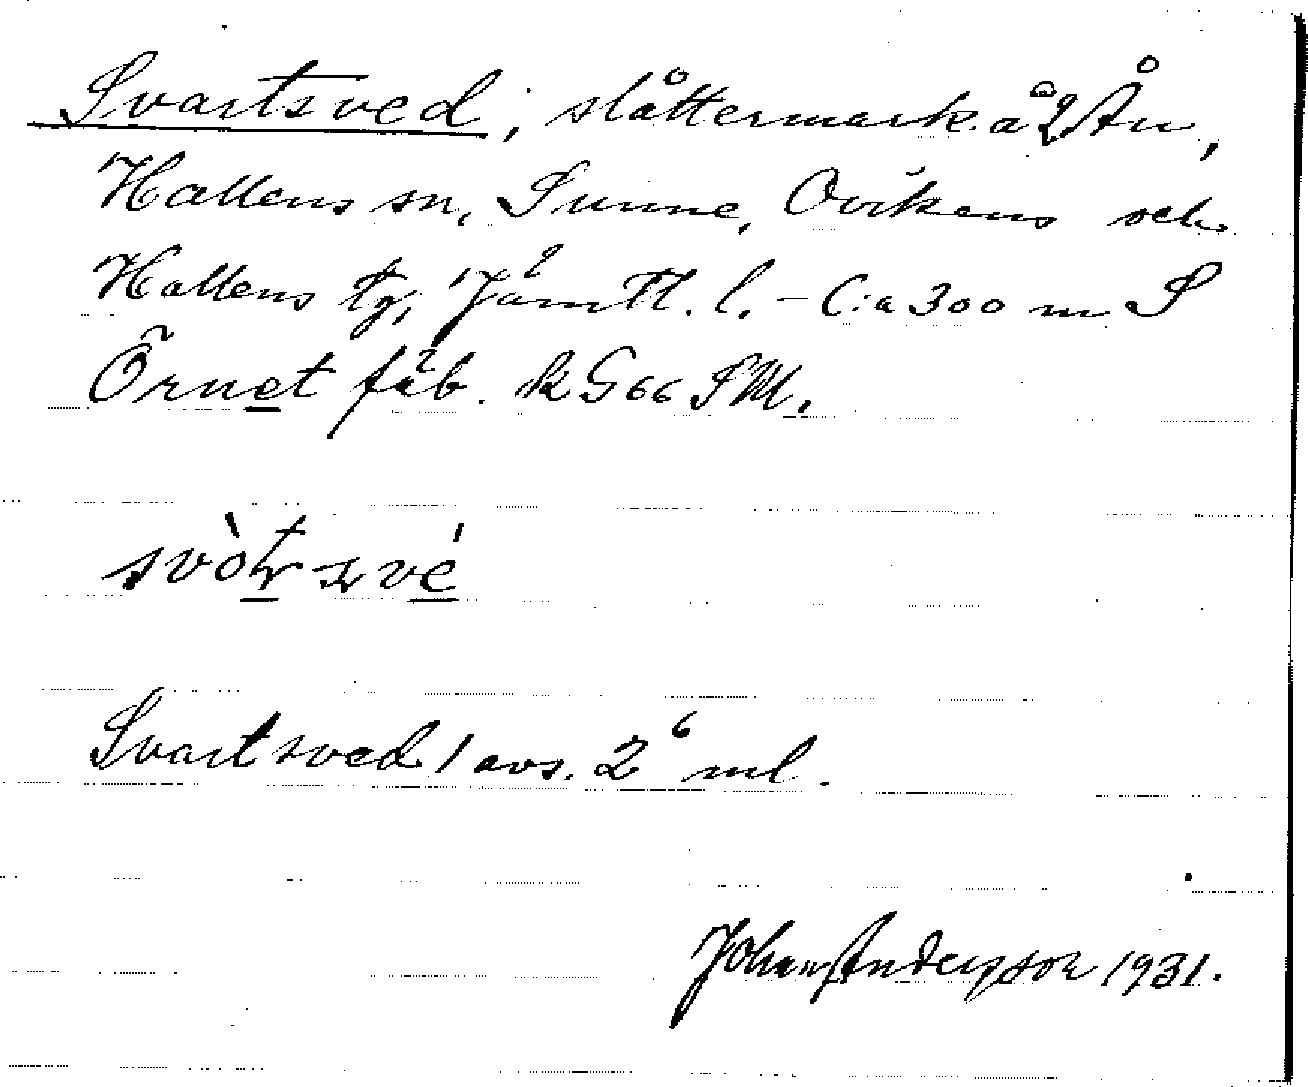 Svartsved, slåttermark å 2 Ån,
Hallens sn, Sunne, Ovikens och
Hallens tg, Jämtl. l. - C:a 300 m S
Örnet fäb. k G 66 SM.
Svartsved / avs. 2⁶ ml.
Johan Anderson 1931.